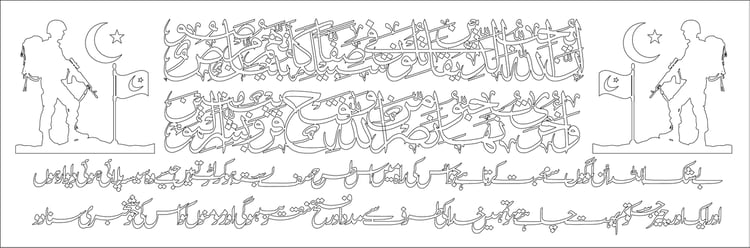 إن الله يحب الذين يقاتلون في سبيله صفا كأنهم بنيان مرصوص
وأخرى تحبونها نصر من الله وفتح قريب وبشر المؤمنين
بیشک اللہ ان لوگوں سے محبت کرتا ہے جو اس کی راہ میں اس طرح صف بستہ ہو کر لڑتے ہیں جیسے وہ سیسہ پلائی ہوئی دیوار ہوں
اور ایک اور چیز جس کو تم بہت چاہتے ہو تمہیں خدا کی طرف سے مدد اور فتح عنقریب ہوگی اور مومنوں کو اس کی خوشخبری سنا دو